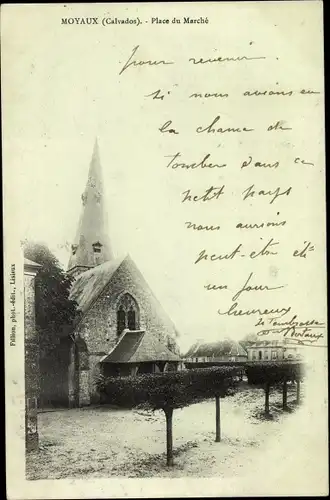 MOYAUX (Calvados). - Place du Marché
pour revenir.
si nous avions eu
la chance de
tomber dans ce
petit pays
nous aurions
peut-être été
un jour
heureux
Fillion, phot.-édit., Lisieux